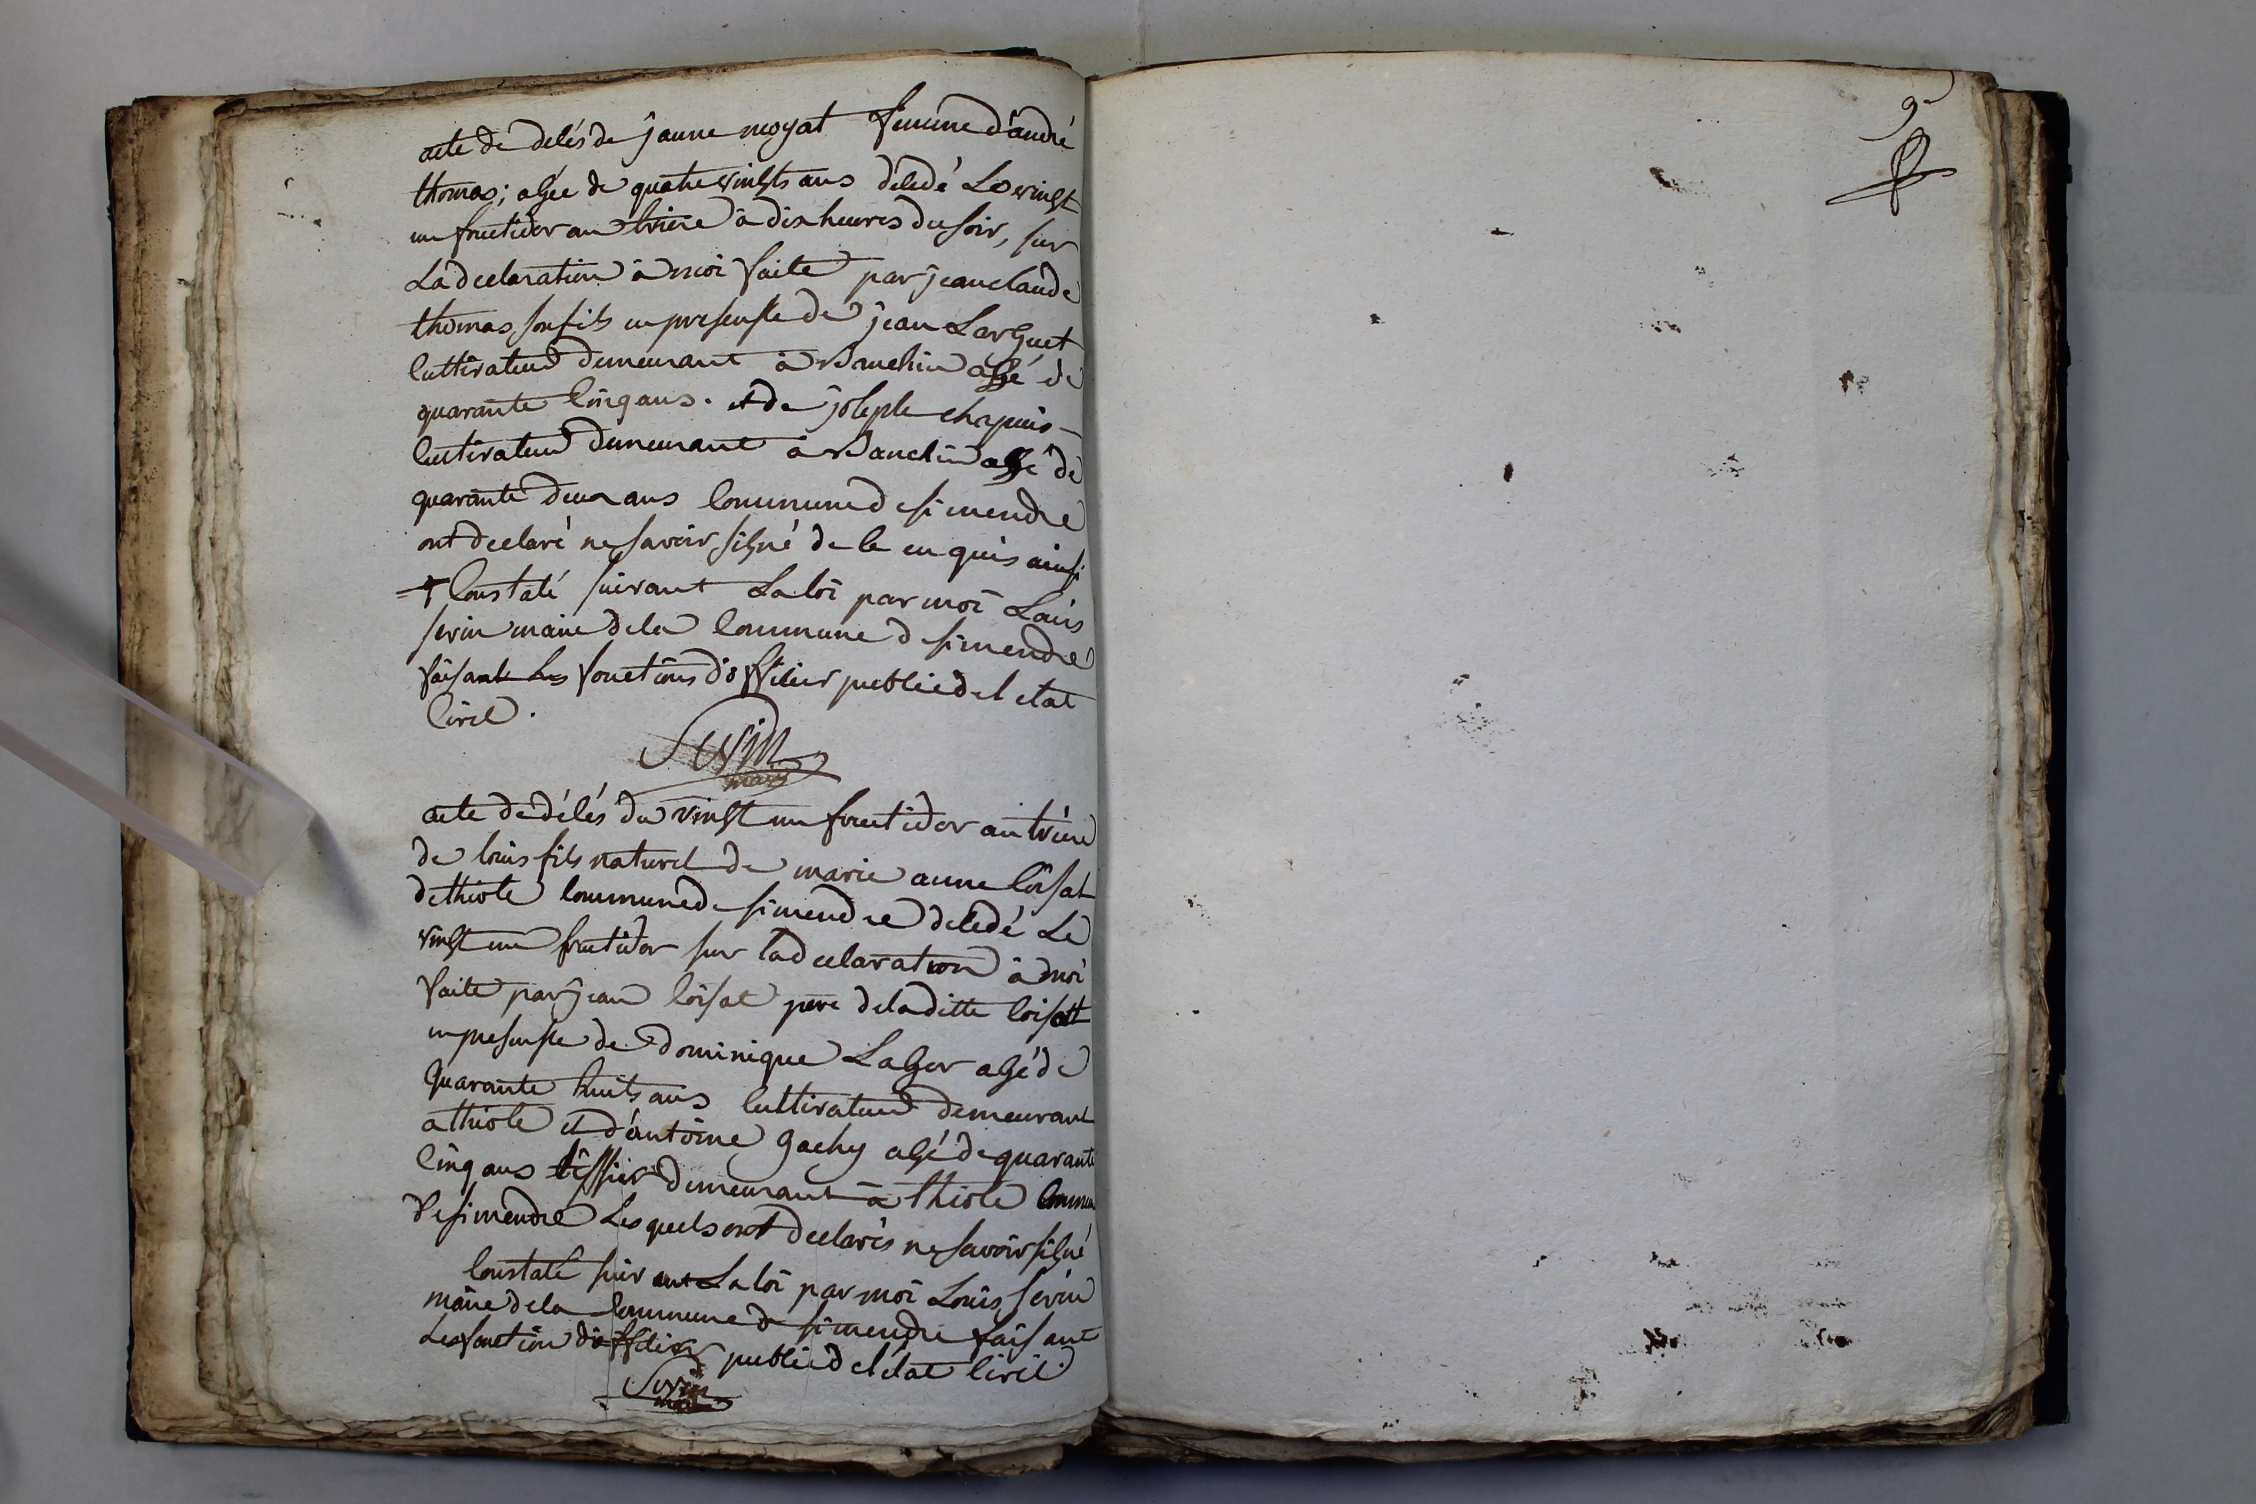 acte de delés de jeanne moyat femme d'andré
thomas; agée de quatrevingts ans déledé Le vingt
un fructidor an treize à dix heures du soir, sur
La declaration à moi faite par jean claude
thomas son fils en presensse de jean Larguet
cultivateur demeurant à Banchin agé de
quarante cinq ans. et de joseph chapuis
cultivateur demeurant à Banchin agé de
quarante deux ans commune de simendre
ont declaré ne savoir signé de ce enquis ainsi
Constaté suivant La loi par moi Louis
servin maire de la commune de simendre
faisant Les fonctions d'officier public de l'etat
Civil.
Servin
maire
acte de délés du vingt un fructidor an treize
de louis fils naturel de marie anne loisat
de thiole commune de simendre deledé Le
vingt un fructidor sur la declaration à moi
faite par jean loisat pere de laditte loisatt
en presensse de dominique Lager agé de
quarante huits ans cultivateur demeurant
a thiole et d'antoine gachy agé de quarante
cinq ans tissier demeurant à thiole commune
de simendre Lesquels ont declarés ne savoir signé
Constaté suivant La loi par moi Louis servin
maire de la commune de simendre faisant
Les fonction d'officier public de l'état Civil.
Servin
maire
9